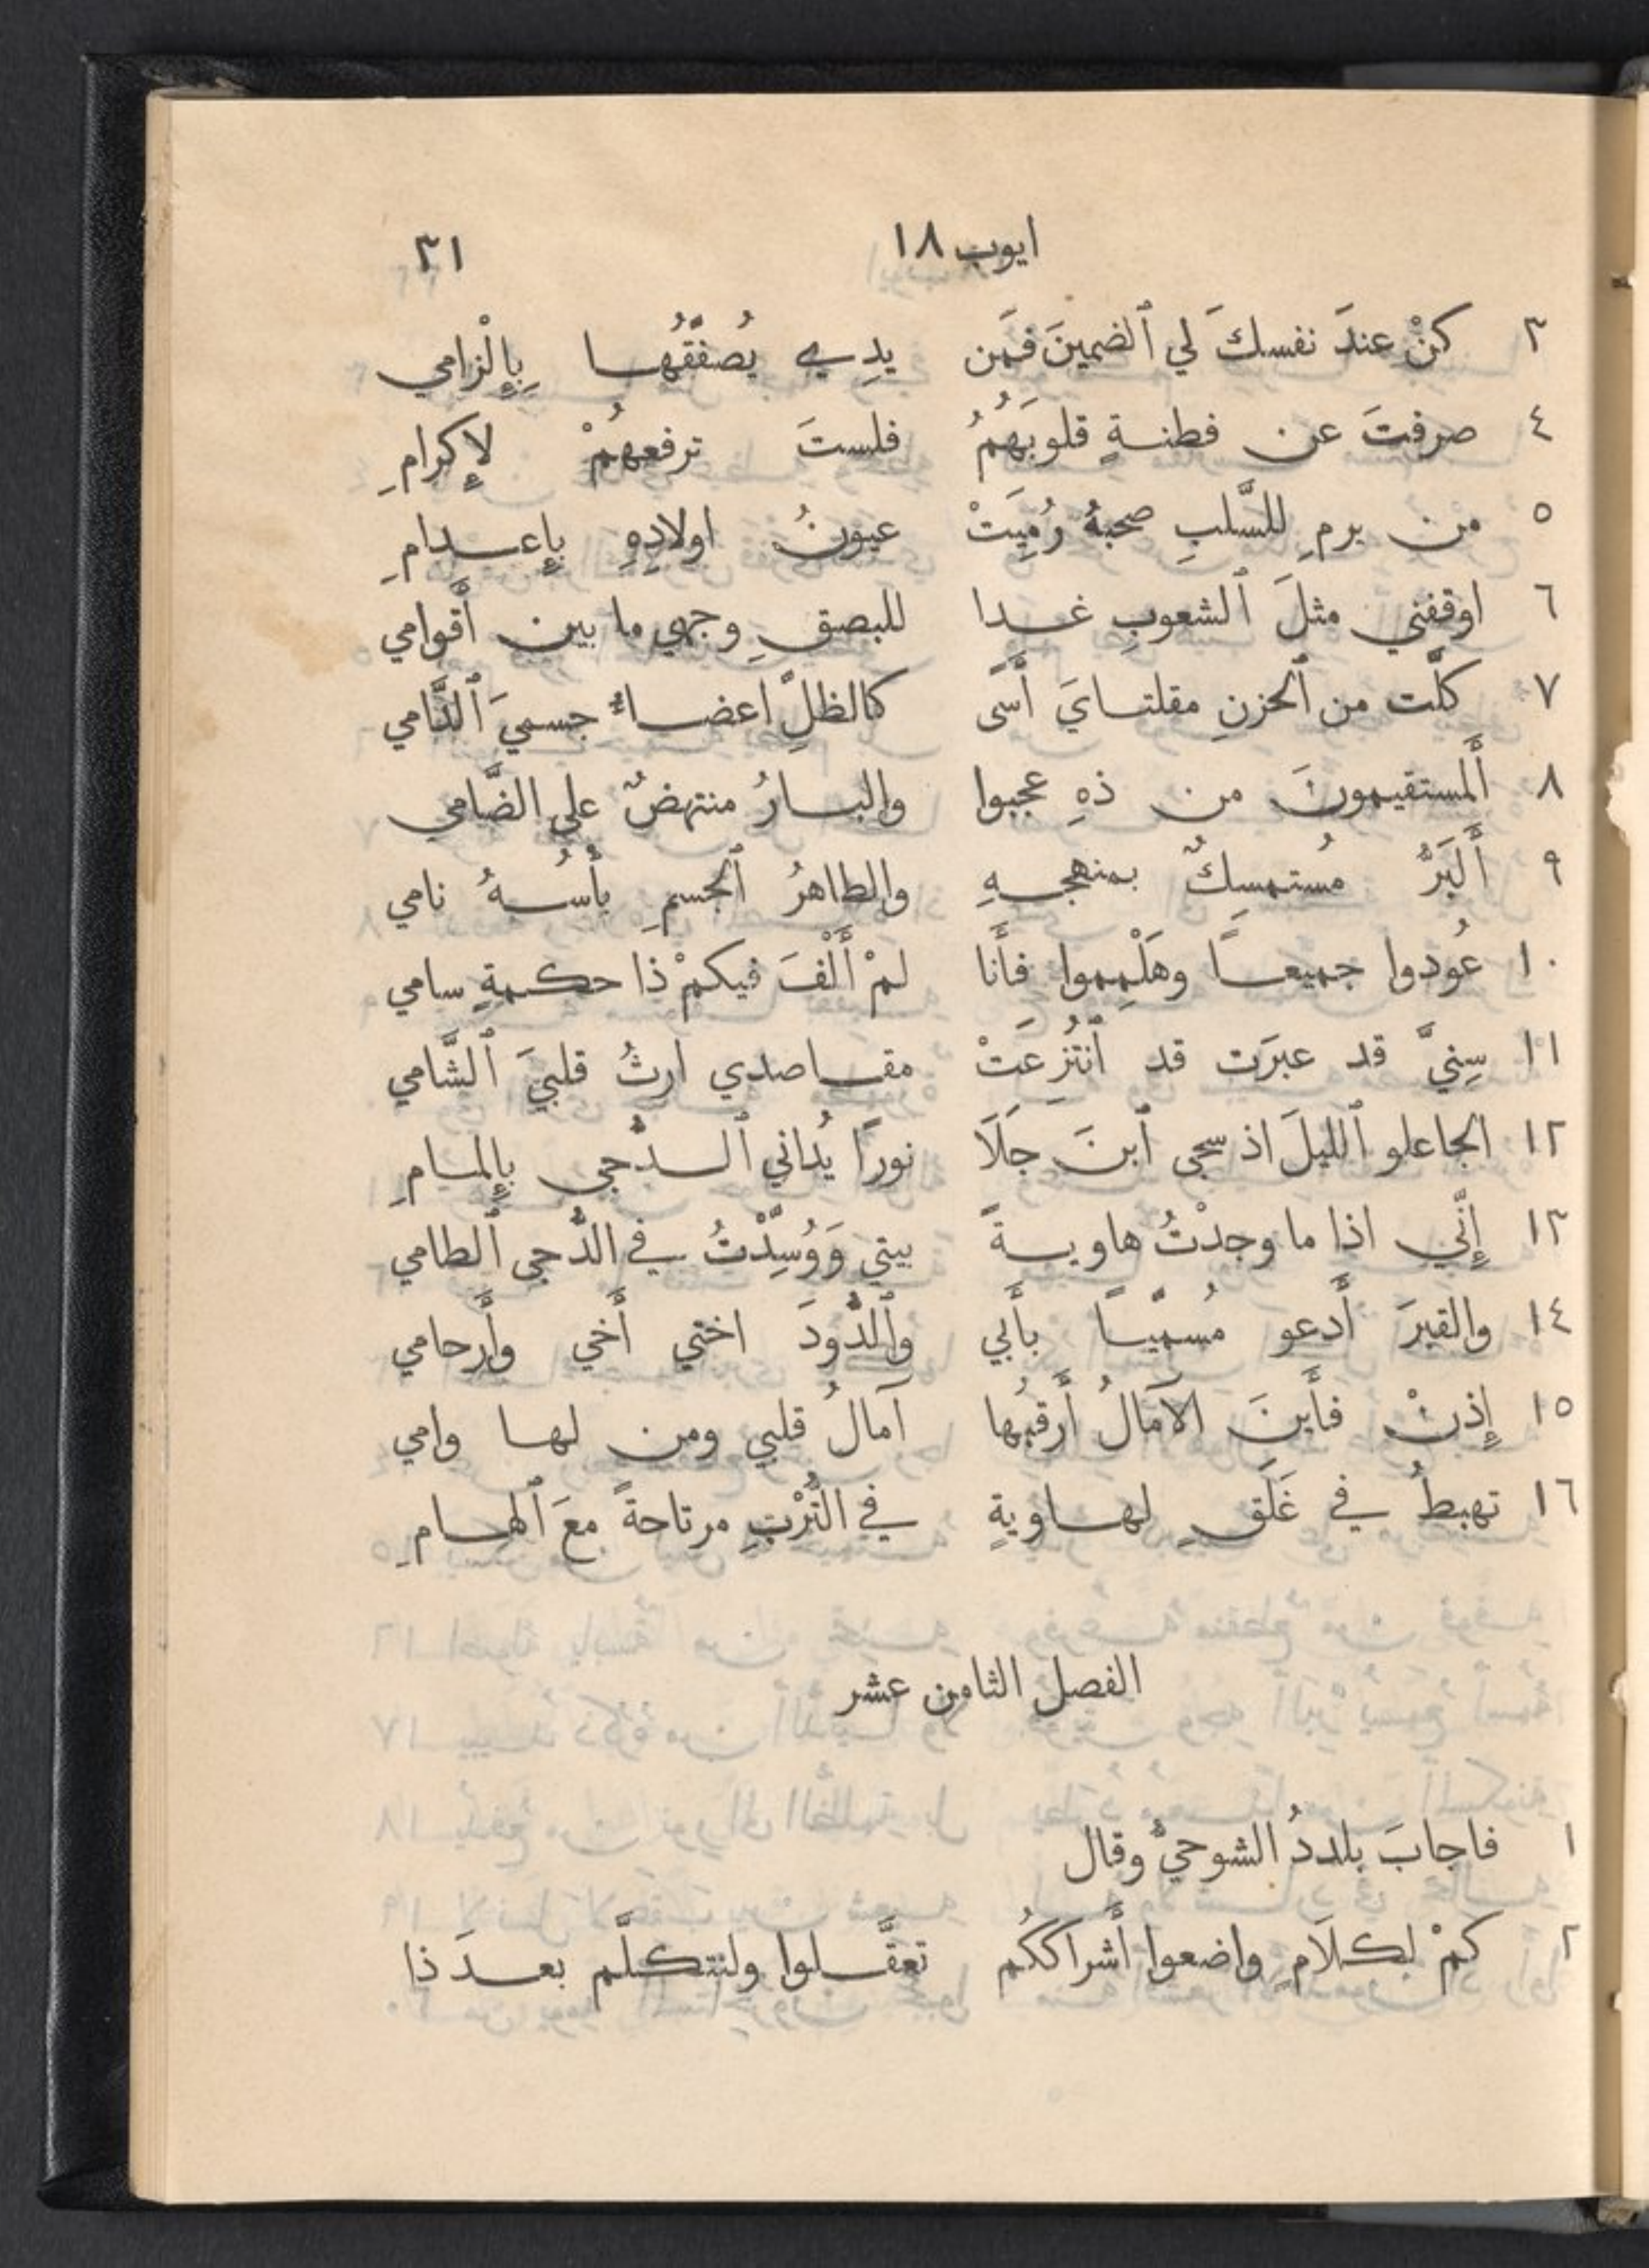 ايوب ١٨ ٣١
٣ كنْ عندَ نفسكَ لي ٱلضمينَ فمَن يدِي يُصفَّقُها بِإِلْزامي
٤ صرفتَ عن فطنةٍ قلوبَهُمُ فلستَ ترفعهُمْ لإِكرامِ
٥ من يرمِ للسَّلبِ صحبهُ رُمِيَتْ عيونُ اولادِهِ بإِعدامِ
٦ اوقفني مثلَ ٱلشعوبِ غدا للبصقِ وجهي ما بين أَقوامي
٧ كلَّت من ٱلحزنِ مقلتايَ أَسًى كالظلِّ اعضاءُ جسميَ ٱلدَّامي
٨ أَلمستقيمونَ من ذهِ عجبوا والبارُ منتهضٌ على الضَّامي
٩ أَلبَرُّ مُستمسِكٌ بمنهجهِ والطاهرُ ٱلجسمِ بأْسُهُ نامي
١٠ عُودوا جميعًا وهَلْمِموا فأَنا لمْ أَلْفَ فيكمْ ذَا حكمةٍ سامي
١١ سِنيَّ قد عبرَت قد ٱنتُزِعَتْ مقاصدي ارثُ قلبيَ ٱلشَّامي
١٢ الجاعلو ٱلليلَ اذ سجى ٱبنَ جَلَا نورًا يُداني ٱلدُّجي بإِلمامِ
١٣ إِنّي اذا ما وجدْتُ هاويةً بيتي وَوُسِّدْتُ في الدُّجى ٱلطامي
١٤ والقبرَ أَدعو مُسمّيًا بأَبي وٱلدُّودَ اختي أَخي وأَرحامي
١٥ إِذنْ فأَينَ الآمَالُ أَرقبُها آمالُ قلبي ومن لها وامي
١٦ تهبطُ في غَلَقٍ لهاويةٍ في التُّرْبِ مرتاحةً معَ ٱلهامِ
الفصل الثامن عشر
١ فاجابَ بلددُ الشوحيُّ وقال
٢ كمْ لكلَامٍ واضعوا أَشراككُم تعقَّلوا ولنتكلَّم بعدَ ذا